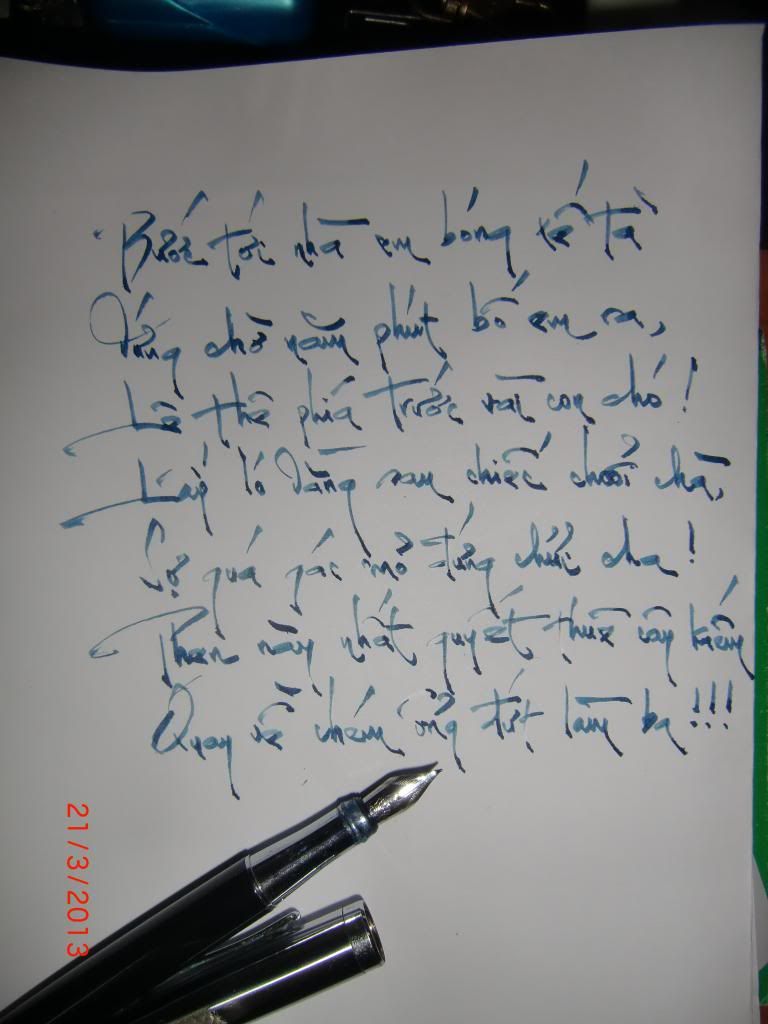 Bước tới nhà em bóng xế tà
Đứng chờ năm phút bố em ra,
Lơ thơ phía trước vài con chó!
Lấp ló đằng sau chiếc chổi chà,
Sợ quá gác mỏ đứng chửi cha!
Phen này nhất quyết thuê cây kiếm
Quay về chém ổng đứt làm ba!!!
21/3/2013